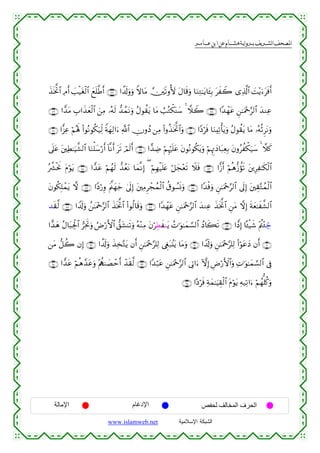 المصحف الشريف برواية هشام عن ابن عامر
أَفَرَءَيْتَ ٱلَّذِى كَفَرَ بِـَٔايَـٰتِنَا وَقَالَ لَأُوتَيَنَّ مَالًا وَوَلَدًا ۝ أَطَّلَعَ ٱلْغَيْبَ أَمِ ٱتَّخَذَ
عِندَ ٱلرَّحْمَـٰنِ عَهْدًا ۝ كَلَّا ۚ سَنَكْتُبُ مَا يَقُولُ وَنَمُدُّ لَهُۥ مِنَ ٱلْعَذَابِ مَدًّا ۝
وَنَرِثُهُۥ مَا يَقُولُ وَيَأْتِينَا فَرْدًا ۝ وَٱتَّخَذُوا۟ مِن دُونِ ٱللَّهِ ءَالِهَةً لِّيَكُونُوا۟ لَهُمْ عِزًّا ۝
كَلَّا ۚ سَيَكْفُرُونَ بِعِبَادَتِهِمْ وَيَكُونُونَ عَلَيْهِمْ ضِدًّا ۝ أَلَمْ تَرَ أَنَّآ أَرْسَلْنَا ٱلشَّيَـٰطِينَ عَلَى
ٱلْكَـٰفِرِينَ تَؤُزُّهُمْ أَزًّا ۝ فَلَا تَعْجَلْ عَلَيْهِمْ ۖ إِنَّمَا نَعُدُّ لَهُمْ عَدًّا ۝ يَوْمَ نَحْشُرُ
ٱلْمُتَّقِينَ إِلَى ٱلرَّحْمَـٰنِ وَفْدًا ۝ وَنَسُوقُ ٱلْمُجْرِمِينَ إِلَىٰ جَهَنَّمَ وِرْدًا ۝ لَّا يَمْلِكُونَ
ٱلشَّفَـٰعَةَ إِلَّا مَنِ ٱتَّخَذَ عِندَ ٱلرَّحْمَـٰنِ عَهْدًا ۝ وَقَالُوا۟ ٱتَّخَذَ ٱلرَّحْمَـٰنُ وَلَدًا ۝ لَّقَد
جِّئْتُمْ شَيْـًٔا إِدًّا ۝ تَكَادُ ٱلسَّمَـٰوَٰتُ يَنفَطِرْنَ مِنْهُ وَتَنشَقُّ ٱلْأَرْضُ وَتَخِرُّ ٱلْجِبَالُ هَدًّا ۝
أَن دَعَوْا۟ لِلرَّحْمَـٰنِ وَلَدًا ۝ وَمَا يَنۢبَغِى لِلرَّحْمَـٰنِ أَن يَتَّخِذَ وَلَدًا ۝ إِن كُلُّ مَن
فِى ٱلسَّمَـٰوَٰتِ وَٱلْأَرْضِ إِلَّآ ءَاتِى ٱلرَّحْمَـٰنِ عَبْدًا ۝ لَّقَدْ أَحْصَىٰهُمْ وَعَدَّهُمْ عَدًّا ۝
وَكُلُّهُمْ ءَاتِيهِ يَوْمَ ٱلْقِيَـٰمَةِ فَرْدًا ۝
الحرف المخالف لحفص الإدغام الإمالة
الشبكة الإسلامية www.islamweb.net